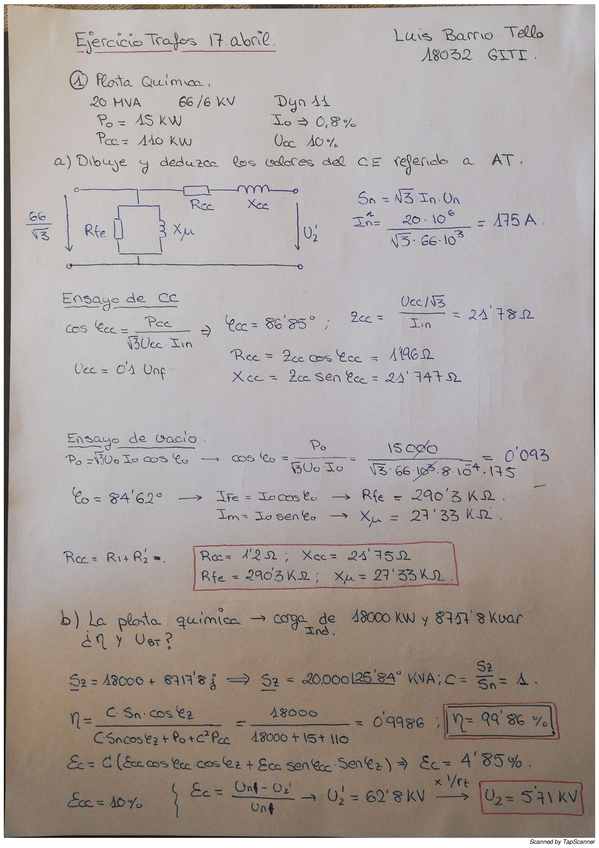 Ejercicio Trafos 17 abril.
Luis Barrio Tello
18032 GITI.
① Planta Química.
20 MVA 66/6 KV Dyn 11
Po = 15 KW Io ⇒ 0,8%
Pcc = 110 KW Ucc 10%
a) Dibuje y deduzca los valores del CE referido a AT.
66/√3 Rfe Xμ Rcc Xcc U2'
Sn = √3 In·Un
In¹ = 20·10⁶ / √3·66·10³ = 175 A.
Ensayo de CC
cos φcc = Pcc / √3Ucc·I1n ⇒ φcc = 86'85° ; Zcc = Ucc/√3 / I1n = 21'78 Ω
Ucc = 0'1 Unf
Rcc = Zcc cos φcc = 1'196 Ω
Xcc = Zcc sen φcc = 21'747 Ω
Ensayo de vacío.
Po = √3Uo Io cos φo → cos φo = Po / √3Uo·Io = 15000 / √3·66·10³·8·10⁻⁴·175 = 0'093
φo = 84'62° → IFe = Io cos φo → Rfe = 290'3 KΩ.
Im = Io sen φo → Xμ = 27'33 KΩ.
Rcc = R1 + R2'
Rcc = 1'2 Ω ; Xcc = 21'75 Ω
Rfe = 290'3 KΩ ; Xμ = 27'33 KΩ.
b) La planta química → carga de 18000 KW y 8717'8 Kvar
Ind.
¿η y UBT?
Sz = 18000 + 8717'8 j ⇒ Sz = 20.000 |25'84° KVA; C = Sz / Sn = 1.
η = C·Sn·cos φz / C Sn cos φz + Po + C²Pcc = 18000 / 18000 + 15 + 110 = 0'9986 ; η = 99'86 %
Ec = C (Ecc cos φcc·cos φz + Ecc sen φcc·sen φz) ⇒ Ec = 4'85%.
Ecc = 10% { Ec = Unf - U2' / Unf → U2' = 62'8 KV x 1/rt → U2 = 5'71 KV
Scanned by TapScanner